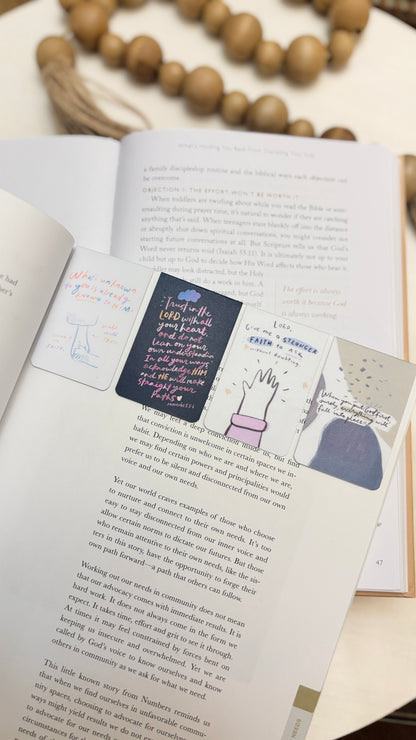 What's Holding You Back From Discipling Your Kids
a family discipleship routine and the biblical ways each objection can
be overcome.
OBJECTION 1: THE EFFORT WON'T BE WORTH IT
When toddlers are twirling about while you read the Bible or some-
assaulting during prayer time, it's natural to wonder if they are catching
anything that's said. When teenagers stare bleakly off into the distance
or abruptly shut down spiritual conversations, you might consider not
starting future conversations at all. But Scripture tells us that God's
Word never returns void (Isaiah 55:11). It is ultimately not up to your
child but up to God to decide how His Word affects those who hear it
may look distracted, but the Holy
will do a work in him. A
but God
The effort is
always worth it
because God is
always working.
47
What's unknown
to you is already
known to HIM.
Trust in the
LORD with all
your heart,
and do not
lean on your
own understanding
In all your ways
acknowledge HIM
and HE will make
straight your
Paths
PROVERBS 3:5-6
LORD,
Give me a STRONGER
FAITH to ask
without doubting
When you put God first
everything will
fall into place
We may feel a deep
that conviction is unwelcome in certain spaces we in-
habit. Depending on who we are and where we are,
we may find certain powers and principalities would
prefer us to be silent and disconnected from our own
voice and our own needs.
Yet our world craves examples of those who choose
to nurture and connect to their own needs. It's too
easy to stay disconnected from our inner voice and
allow certain norms to dictate our futures. But those
who remain attentive to their own needs, like the sis-
ters in this story, have the opportunity to forge their
own path forward—a path that others can follow.
Working out our needs in community does not mean
that our advocacy comes with immediate results. It is
hard work. It does not always come in the form we
expect. It takes time, effort and grit to see it through.
At times it may feel constrained by forces bent on
keeping us insecure and overwhelmed. Yet we are
called by God's voice to know ourselves and know
others in community as we ask for what we need.
This little known story from Numbers reminds us
that when we find ourselves in unfavorable commu-
nity spaces, choosing to advocate for ourselves
ways might yield results we do not
to advocate for our needs
circumstances for th
NEEDS